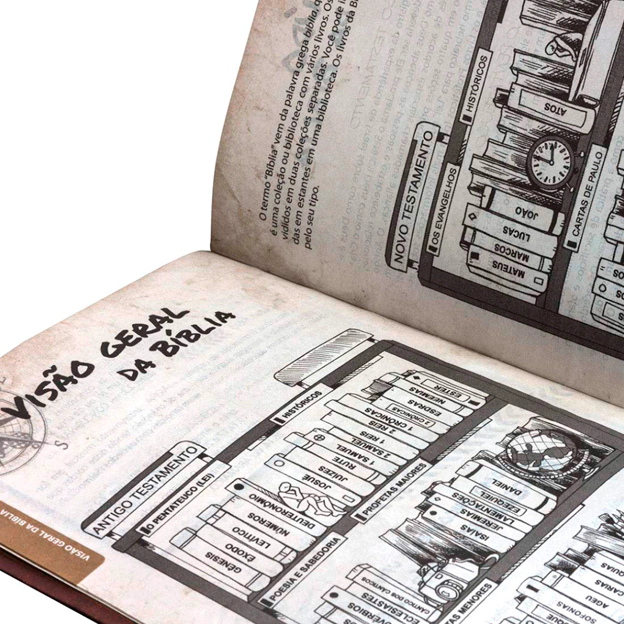 VISÃO GERAL
DA BÍBLIA
VISÃO GERAL DA BÍBLIA
S
ANTIGO TESTAMENTO
O PENTATEUCO (LEI)
GÊNESIS
EXODO
LEVITICO
NÚMEROS
DEUTERONÔMIO
HISTÓRICOS
JOSUÉ
JUIZES
RUTE
1 SAMUEL
2 SAMUEL
1 REIS
2 REIS
1 CRÔNICAS
2 CRÔNICAS
ESDRAS
NEEMIAS
ESTER
POESIA E SABEDORIA
PROVÉRBIOS
ECLESIASTES
CÂNTICO DOS CÂNTICOS
PROFETAS MAIORES
ISAÍAS
JEREMIAS
LAMENTAÇÕES
EZEQUIEL
DANIEL
MENORES
SOFONIAS
AGEU
O termo "Bíblia" vem da palavra grega biblio, q
é uma coleção ou biblioteca com vários livros. Os
vididos em duas coleções separadas. Você pode i
das em estantes em uma biblioteca. Os livros da B
pelo seu tipo.
NOVO TESTAMENTO
OS EVANGELHOS
MATEUS
MARCOS
LUCAS
JOÃO
HISTÓRICOS
ATOS
CARTAS DE PAULO